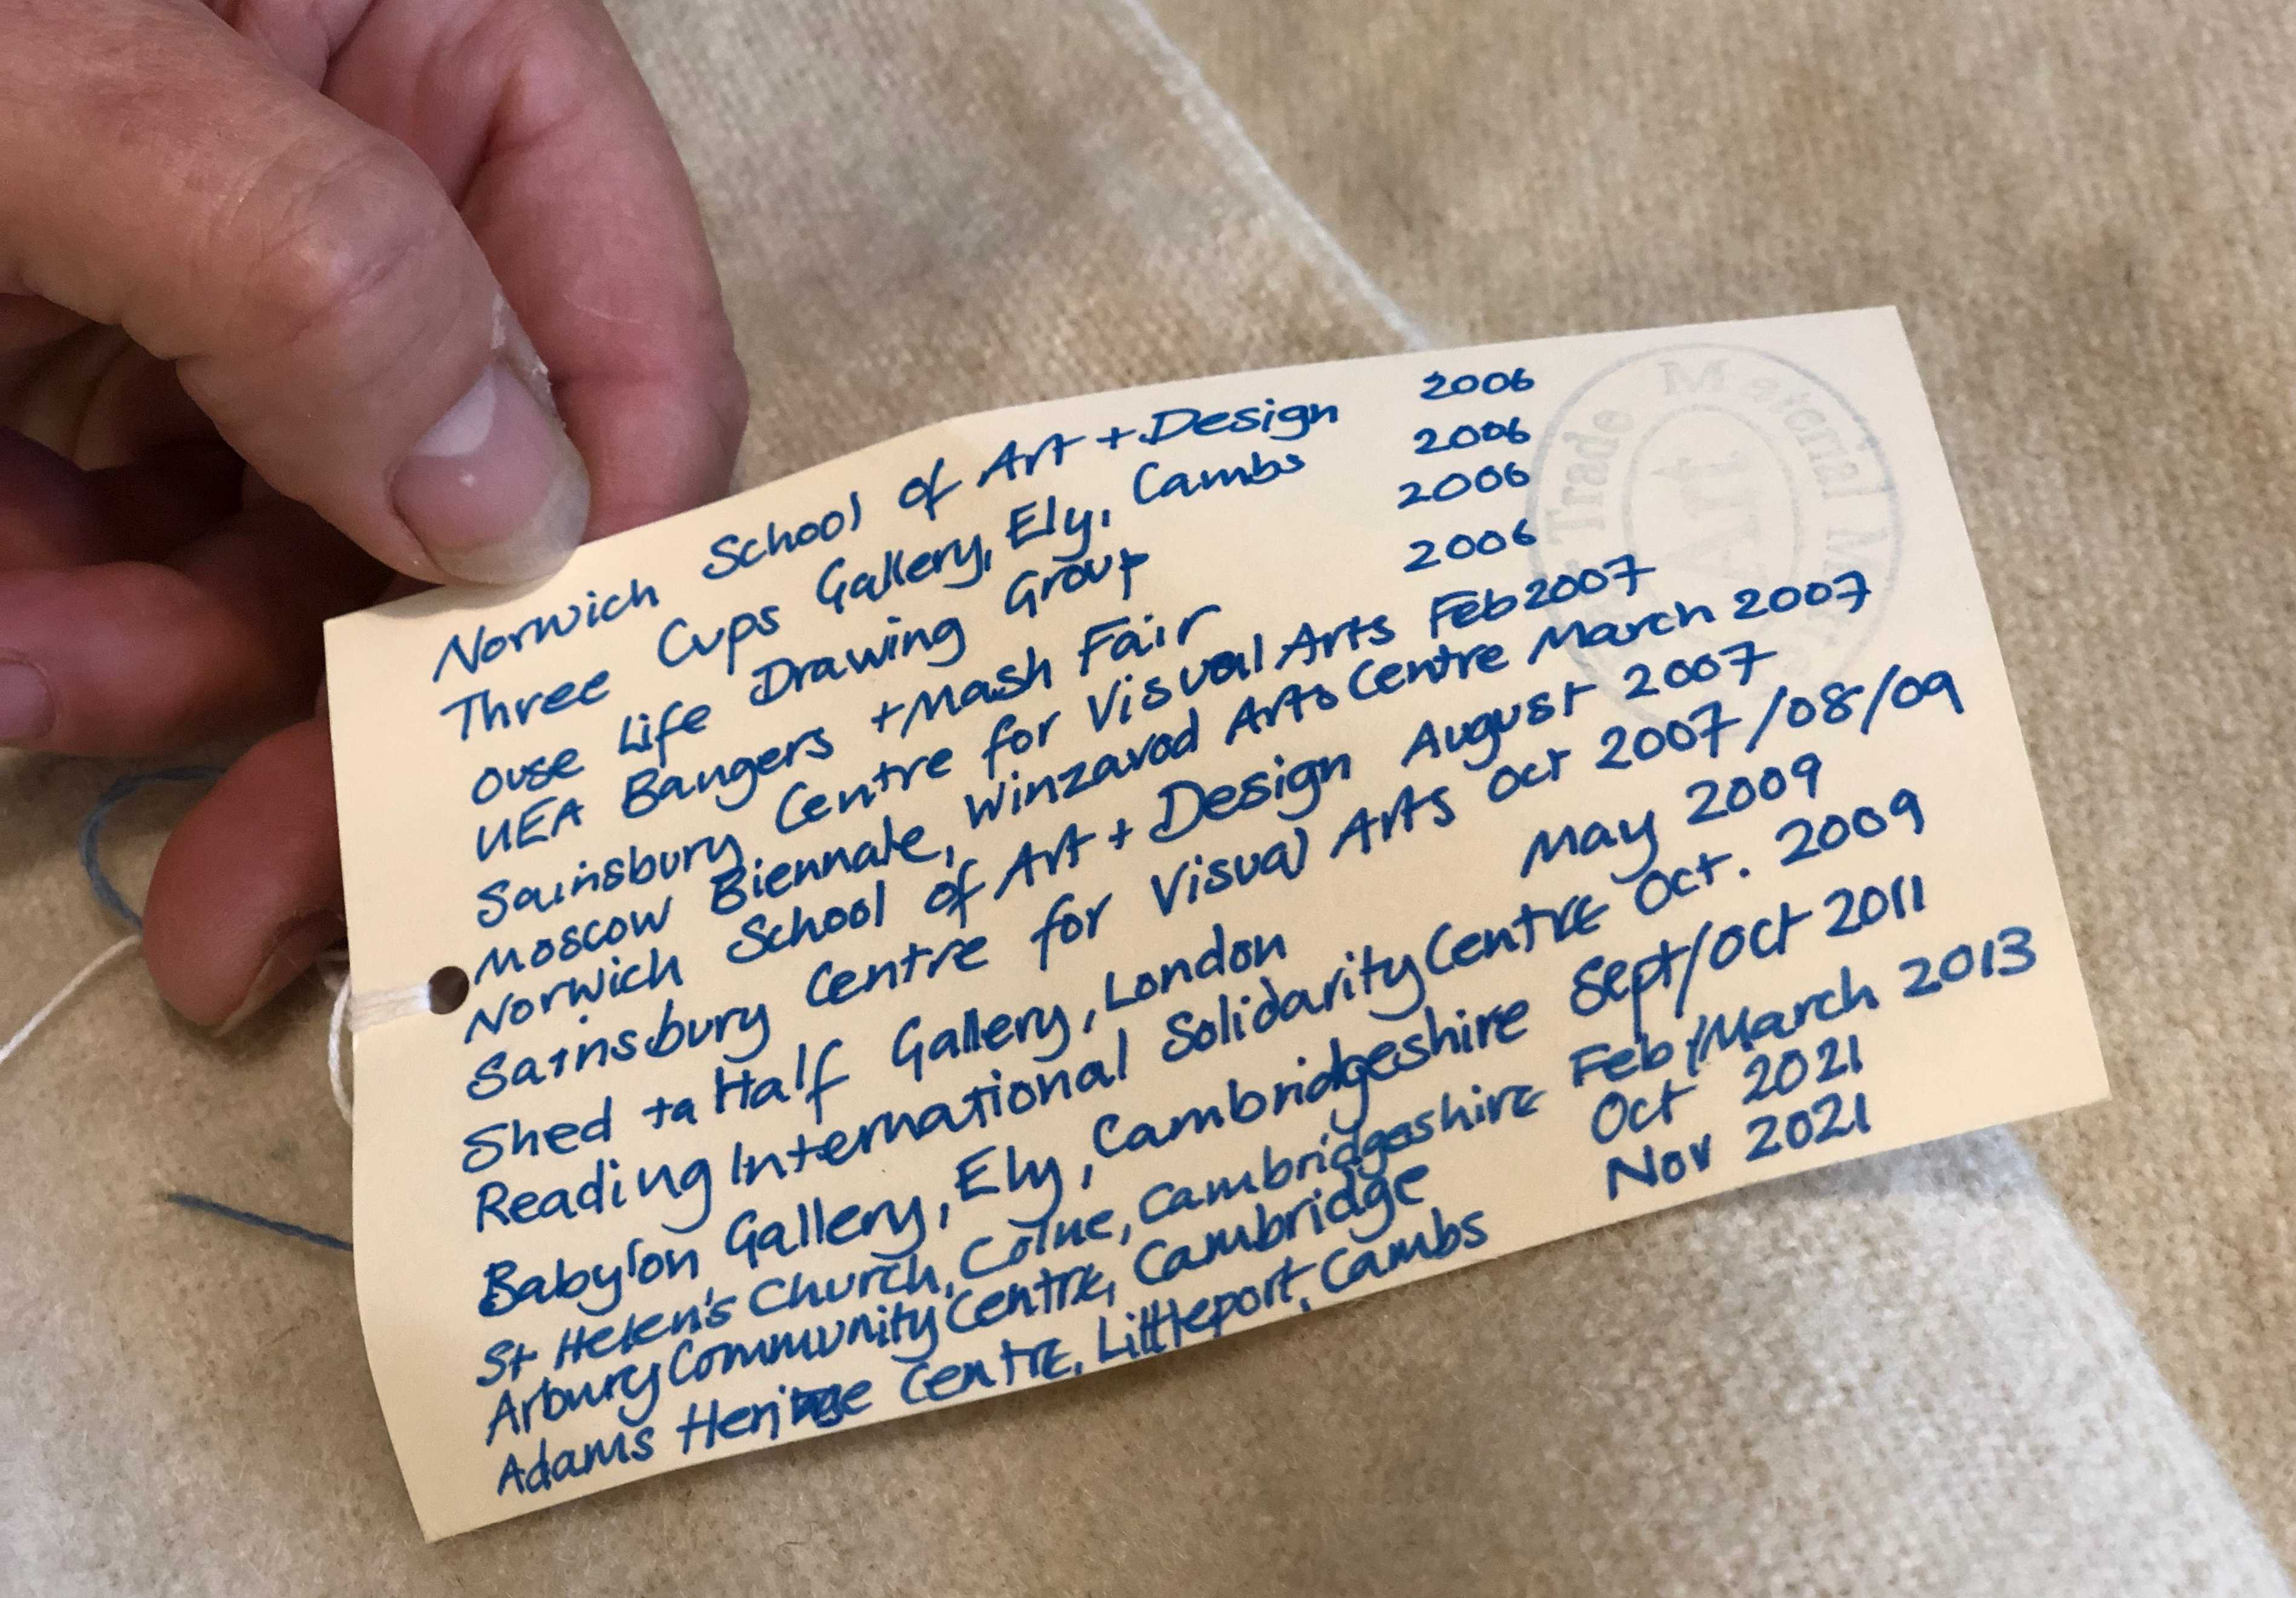 Norwich School of Art + Design 2006
Three Cups Gallery, Ely, Cambs 2006
Ouse Life Drawing Group 2006
UEA Bangers + Mash Fair 2006
Sainsbury Centre for Visual Arts Feb 2007
Moscow Biennale, Winzavod Arts Centre March 2007
Norwich School of Art + Design August 2007
Sainsbury Centre for Visual Arts Oct 2007/08/09
Shed ta Half Gallery, London May 2009
Reading International Solidarity Centre Oct. 2009
Babylon Gallery, Ely, Cambridgeshire Sept/Oct 2011
St Helen's Church, Colne, Cambridgeshire Feb/March 2013
Arbury Community Centre, Cambridge Oct 2021
Adams Heritage Centre, Littleport, Cambs Nov 2021
Trade Material
Art